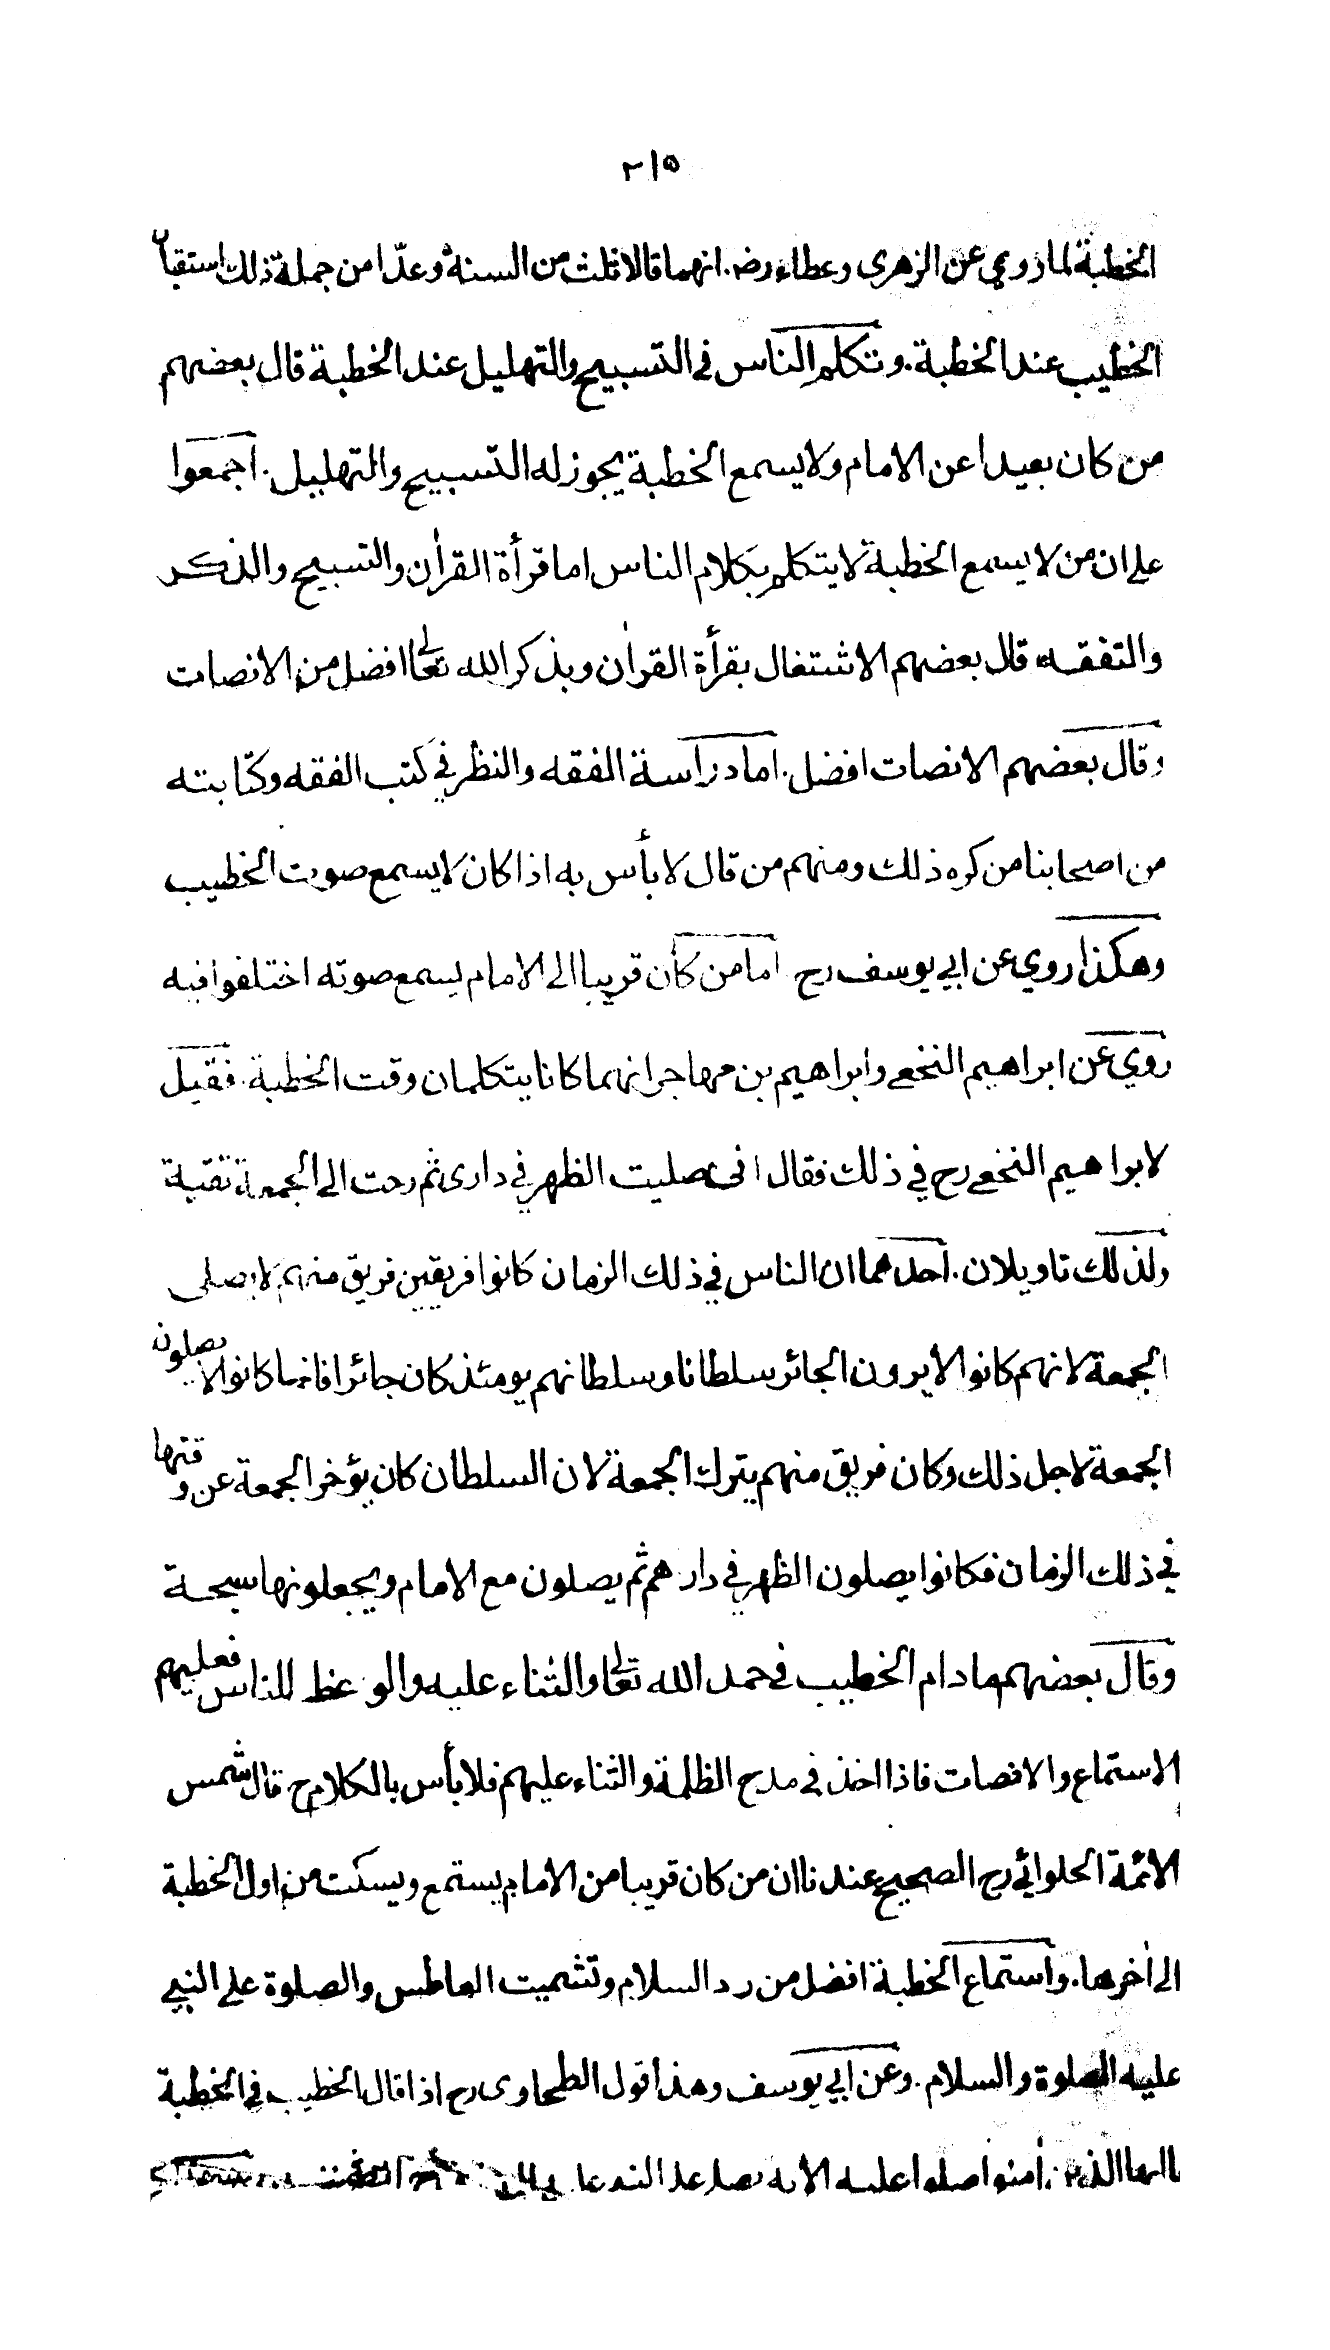 ٢١٥
الخطبة لما روي عن الزهرى وعطاء رضـ. انهما قالا ثلث من السنة وعدّا من جملة ذلك استقبال
الخطيب عند الخطبة. وتكلم الناس في التسبيح والتهليل عند الخطبة قال بعضهم
من كان بعيدا عن الامام ولا يسمع الخطبة يجوز له التسبيح والتهليل. اجمعوا
على ان من لا يسمع الخطبة لا يتكلم بكلام الناس اما قرأة القرأن والتسبيح والذكر
والتفقه قال بعضهم الاشتغال بقرأة القرأن وبذكر الله تعالى افضل من الانصات
وقال بعضهم الانصات افضل. اما دراسة الفقه والنظر في كتب الفقه وكتابته
من اصحابنا من كره ذلك ومنهم من قال لا بأس به اذا كان لا يسمع صوت الخطيب
وهكذا روي عن ابي يوسف رح اما من كان قريبا الى الامام يسمع صوته اختلفوا فيه
روي عن ابراهيم النخعي وابراهيم بن مهاجر انهما كانا يتكلمان وقت الخطبة. فقيل
لابراهيم النخعي رح في ذلك فقال انى صليت الظهر في دارى ثم رحت الى الجمعة تقية
ولذلك تاويلان. احدهما ان الناس في ذلك الزمان كانوا فريقين فريق منهم لا يصلى
الجمعة لانهم كانوا لا يرون الجائر سلطانا وسلطانهم يومئذ كان جائرا فانما كانوا لا يصلون
الجمعة لاجل ذلك وكان فريق منهم يترك الجمعة لان السلطان كان يؤخر الجمعة عن وقتها
في ذلك الزمان فكانوا يصلون الظهر في دارهم ثم يصلون مع الامام ويجعلونها سبحة
وقال بعضهم ما دام الخطيب في حمد الله تعالى والثناء عليه والوعظ للناس فعليهم
الاستماع والانصات فاذا اخذ في مدح الظلمة والثناء عليهم فلا بأس بالكلام ح قال شمس
الائمة الحلوائي رح الصحيح عندنا ان من كان قريبا من الامام يستمع ويسكت من اول الخطبة
الى أخرها. واستماع الخطبة افضل من رد السلام وتشميت العاطس والصلوة على النبي
عليه الصلوة والسلام. وعن ابي يوسف وهذا قول الطحاوى رح اذا قال الخطيب في الخطبة
يا ايها الذين أمنوا صلوا عليه الأية يصلى على النبي